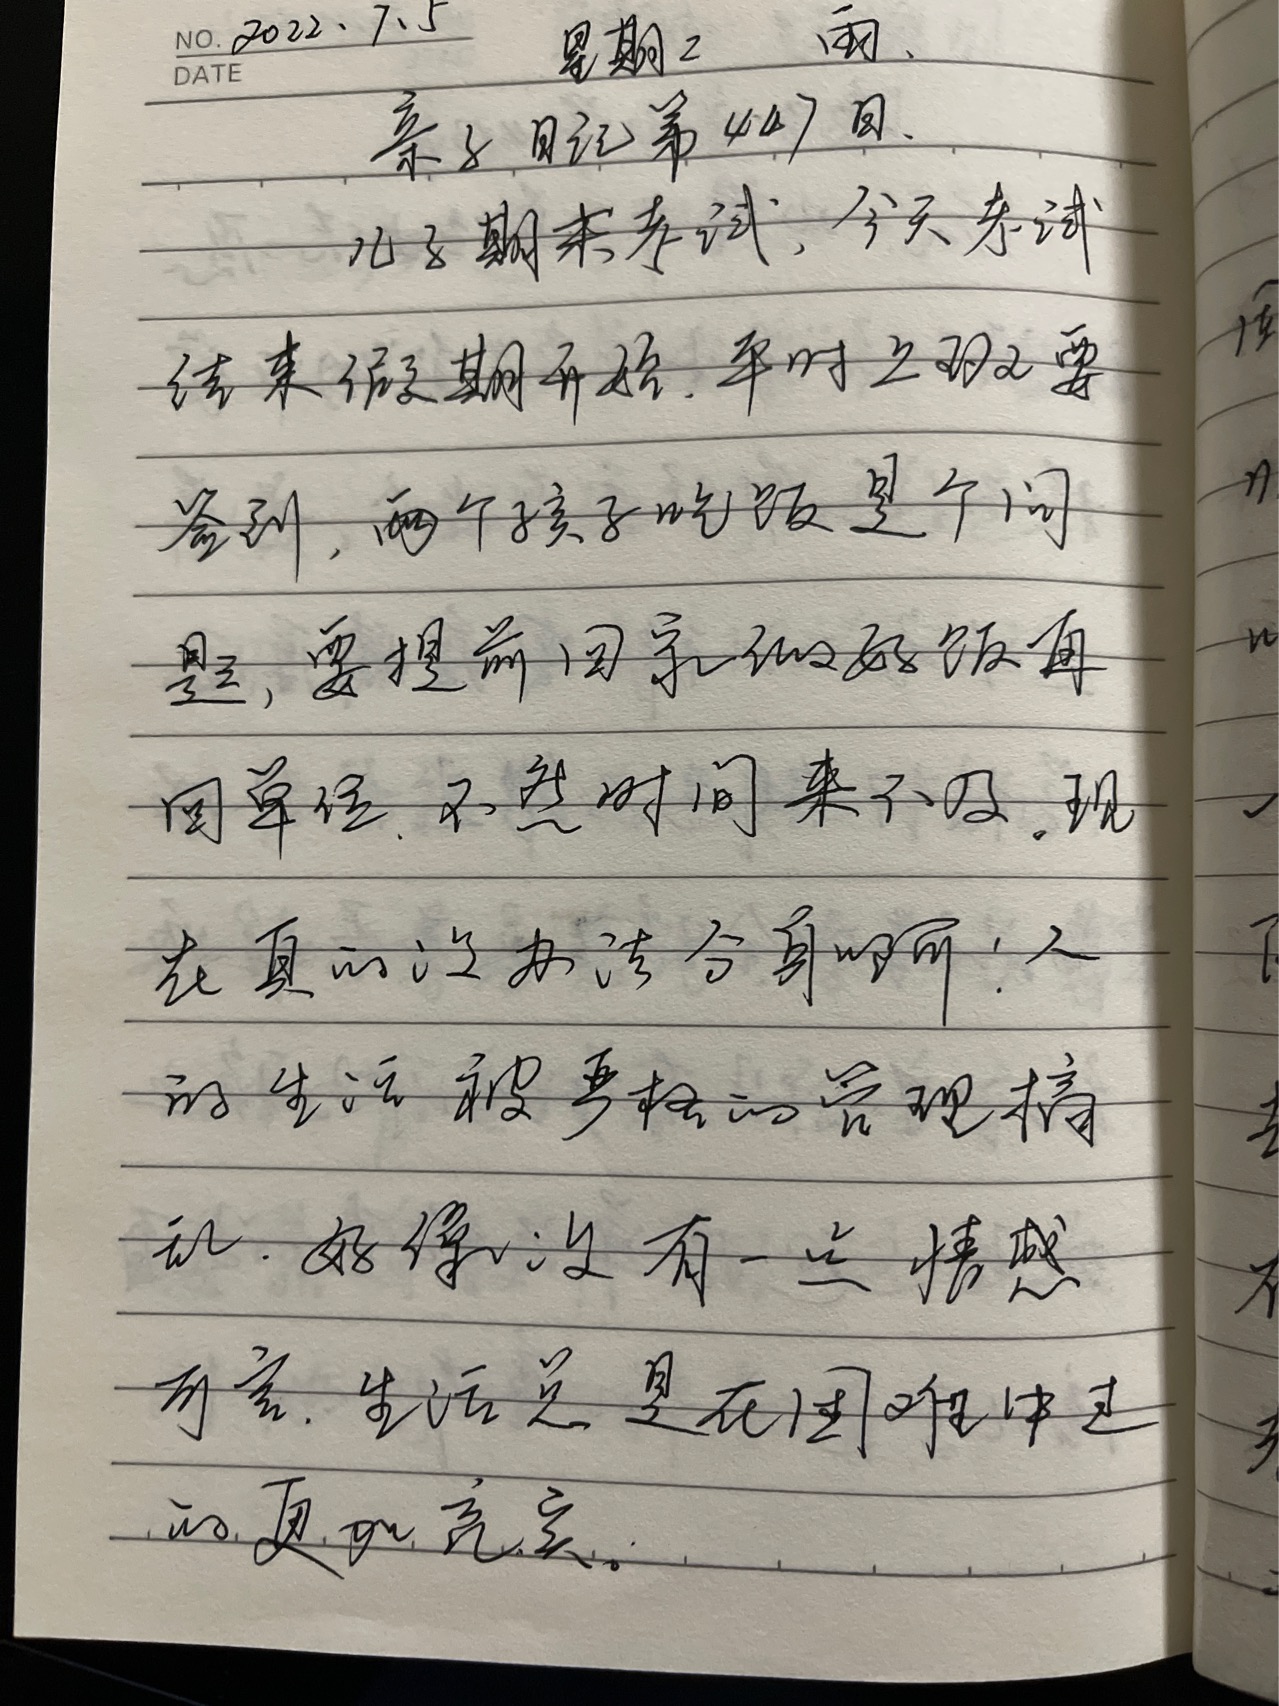 NO. 2022.7.5
DATE
星期二 雨.
亲子日记第447回.
儿子期末考试，今天考试
结束假期开始.平时上班又要
签到,两个孩子吃饭是个问
题,要提前回家做好饭再
回单位.不然时间来不及.现
在真的没办法分身啊!人
的生活被严格的管理搞
乱.好像没有一点情感
可言.生活总是在困难中过
的更加充实。